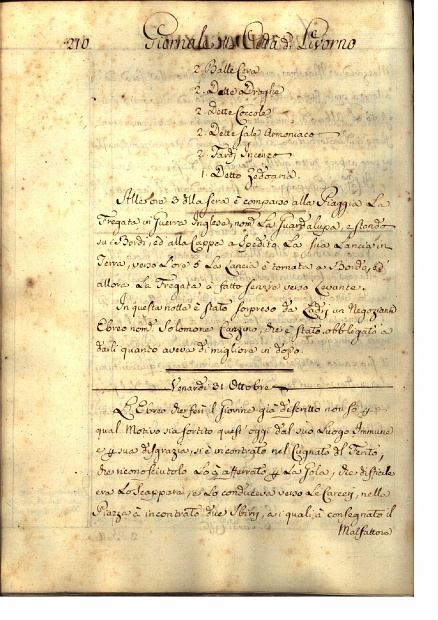 210 Giornale di Città di Livorno
2. Balle Cera
2. Dette Droghe
2. Dette Coccole
2. Dette Sale Armoniaco
2. Fardi Incenso
1. Detto Zedoaria
All'ore 3 della sera è comparso alla Piaggia La
Fregata in Guerra Inglese, nom.ta La Guardalupa, e stando
su i Bordi, ed alla Cappa à spedito La sua Lancia in
Terra, verso L'ore 6 La Lancia è tornata a Bordo, ed
allora La Fregata à fatto senza verso Levante.
In questa notte è stato sorpreso da Ladri un Negoziante
Ebreo nom.to Solomone Canzino, che è stato obbligato a
darli quanto aveva di migliore in dosso.
Venerdì 31 Ottobre
L'Ebreo che ferì il Giovine già descritto non sò p
qual Motivo sia sortito quest'oggi dal suo Luogo Immune
e p sua disgrazia, si è incontrato nel Cugnato del Ferito,
che riconosciutolo Lo à afferrato p La Gola, che difficile
era Lo Scappare, e Lo conduceva verso Le Carceri, nella
Piazza à incontrato due Sbirri, a i quali à consegnato il
Malfattore